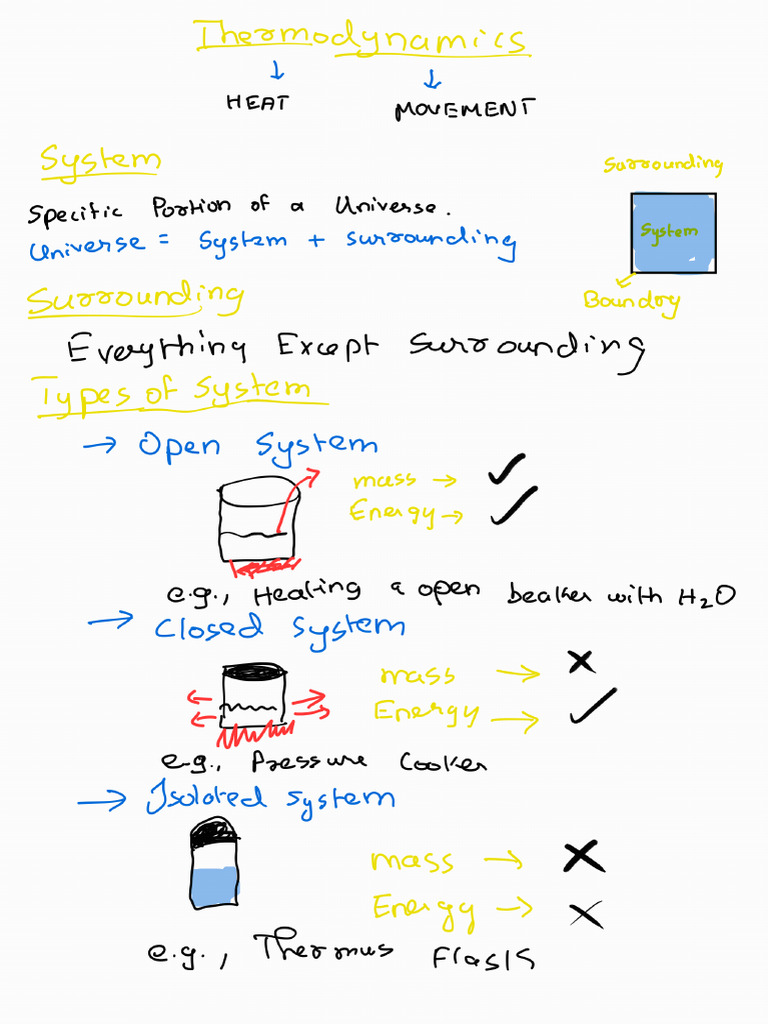 Thermodynamics
HEAT MOVEMENT
System
Surrounding
Specific Portion of a Universe.
Universe = System + Surrounding
System
Boundry
Surrounding
Everything Except Surrounding
Types of System
→ Open System
mass → ✓
Energy → ✓
e.g., Heating a open beaker with H₂O
→ Closed System
mass → ×
Energy → ✓
e.g., Pressure Cooker
→ Isolated System
mass → ×
Energy → ×
e.g., Thermus Flask